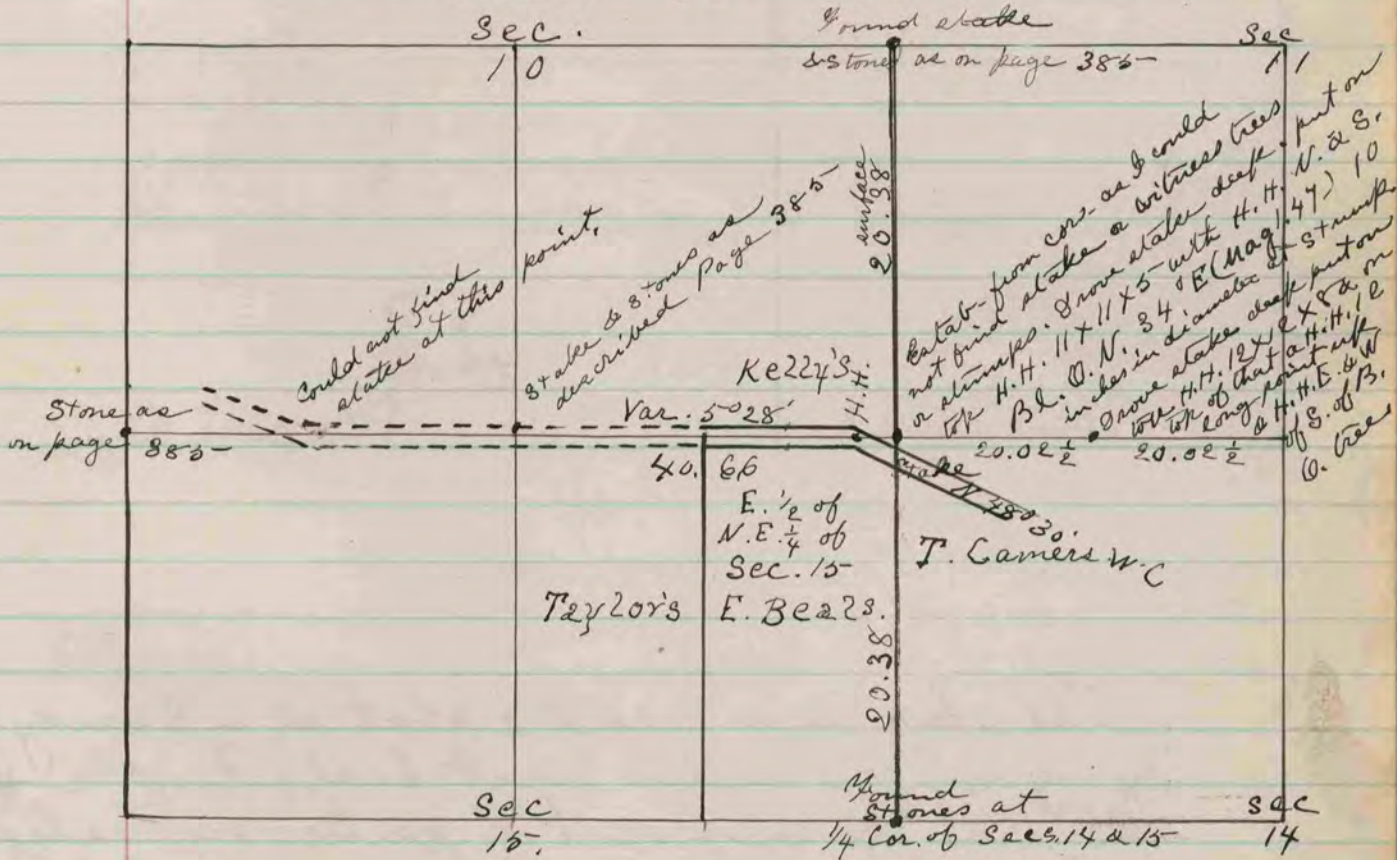 Sec.
10
Found stake
& stones as on page 385
Sec
11
could not find
stake at this point.
Stake & stones as
described Page 385
surface
20.38
Estab. from cor. as I could
not find stake or witness trees
or stumps. Drove stake deep. put on
top H.H. 11 x 11 x 5 with H.H. N. & S.
Bl. O. N. 34° E (Mag) .47) 10
inches in diameter at stump.
Drove stake deep put on
top H.H. 12 x 12 x 8 & on
top of that a H.H. 12
long point up
a H.H. E. & W
of S. of B.
O. tree
Stone as
on page 385
Kelly's
H.H.
Var. 5°28'
40.66
20.02 ½
20.02 ½
stake
N 48°30'
E. ½ of
N.E. ¼ of
Sec. 15
E. Beals.
Taylor's
T. Camers W.C
20.38
Sec
15.
Found
Stones at
¼ Cor. of Secs. 14 & 15
Sec
14